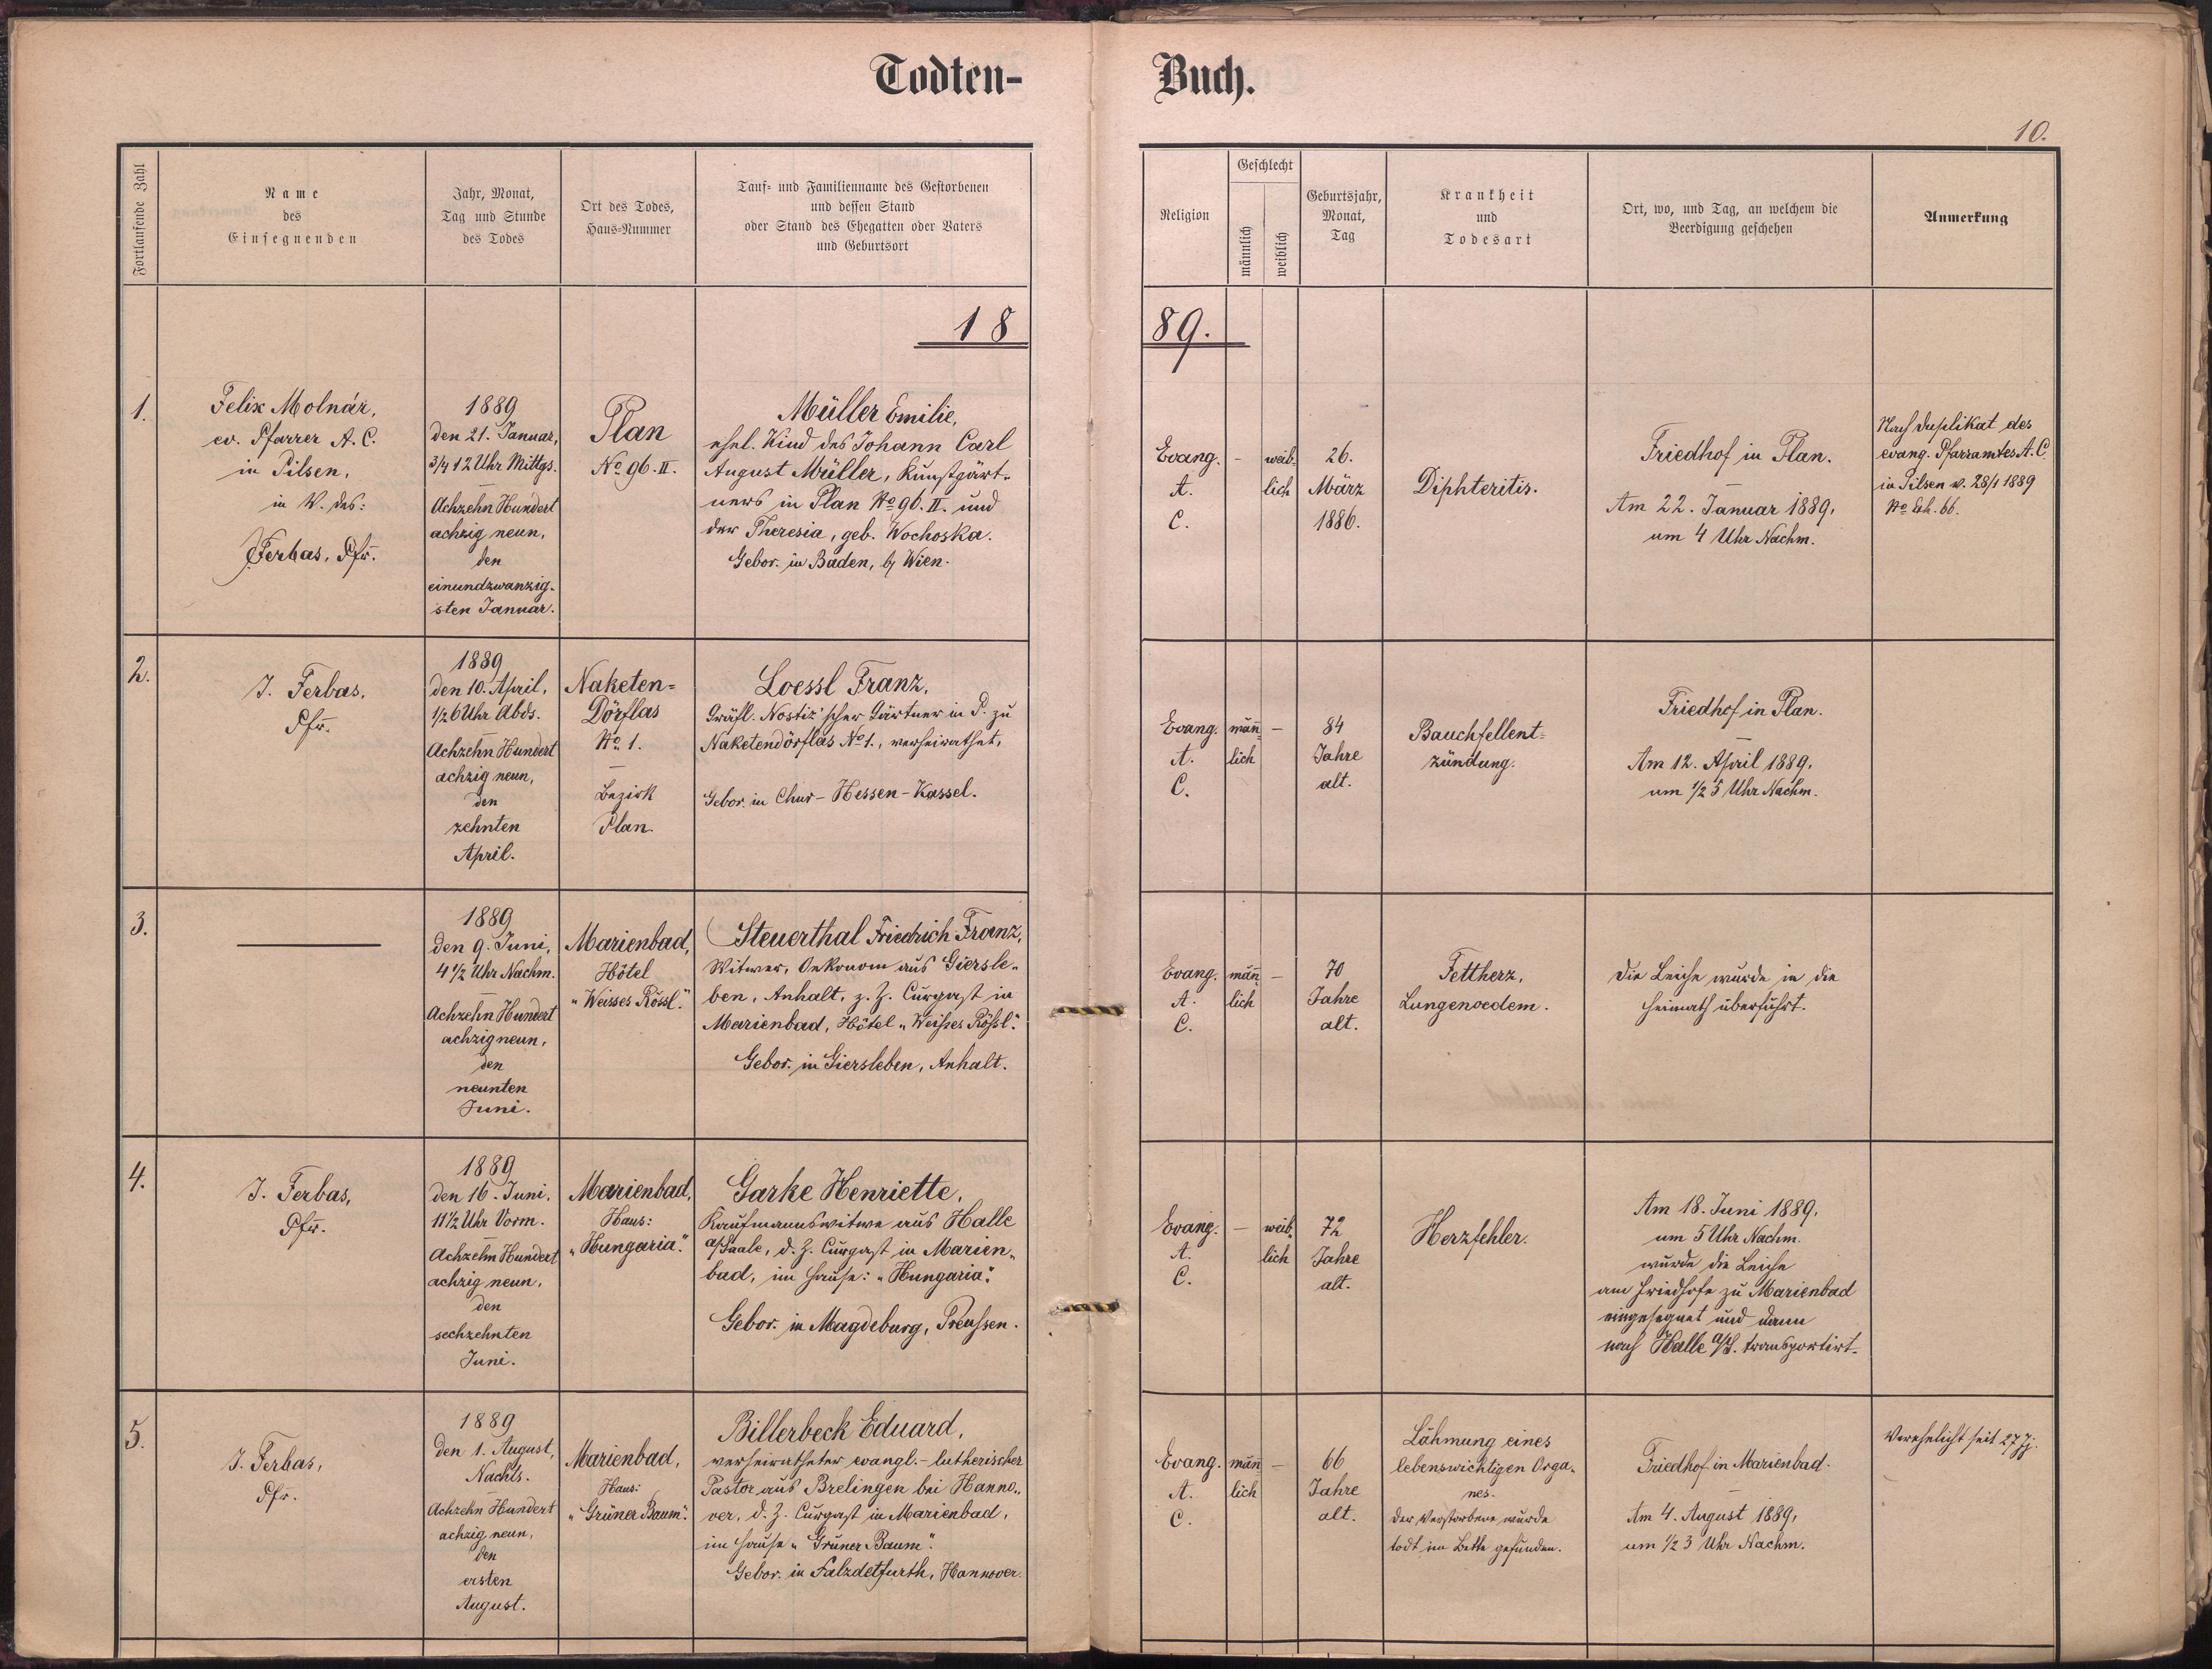 Todten-
Buch.
10.
Fortlaufende Zahl
Name
des
Einsegnenden
Jahr, Monat,
Tag und Stunde
des Todes
Ort des Todes,
Haus-Nummer
Tauf- und Familienname des Gestorbenen
und dessen Stand
oder Stand des Ehegatten oder Vaters
und Geburtsort
Religion
Geschlecht
männlich
weiblich
Geburtsjahr,
Monat,
Tag
Krankheit
und
Todesart
Ort, wo, und Tag, an welchem die
Beerdigung geschehen
Anmerkung
18
89.
1.
Felix Molnár,
ev. Pfarrer A. C.
in Pilsen,
in V. des:
JFerbas, Pfr.
1889
den 21. Januar,
3/4 12 Uhr Mittgs.
Achzehn Hundert
achzig neun,
den
einundzwanzig-
sten Januar.
Plan
No 96. II.
Müller Emilie,
ehel. Kind des Johann Carl
August Müller, Kunstgärt-
ners in Plan No 96. II. und
der Theresia, geb. Wochoska.
Gebor. in Baden, b/ Wien.
Evang.
A.
C.
–
weib-
lich
26.
März
1886.
Diphteritis.
Friedhof in Plan.
Am 22. Januar 1889,
um 4 Uhr Nachm.
Nach Duplikat des
evang. Pfarramtes A. C.
in Pilsen v. 28/1 1889
No Exh. 66.
2.
J. Ferbas,
Pfr.
1889
den 10. April,
1/2 6 Uhr Abds.
Achzehn Hundert
achzig neun,
den
zehnten
April.
Naketen-
Dörflas
No 1.
Bezirk
Plan.
Loessl Franz,
Gräfl. Nostiz'scher Gärtner in P. zu
Naketendörflas No 1., verheirathet,
Gebor. in Chur-Hessen-Kassel.
Evang.
A.
C.
män-
lich
–
84
Jahre
alt.
Bauchfellent-
zündung.
Friedhof in Plan.
Am 12. April 1889,
um 1/2 5 Uhr Nachm.
3.
1889
den 9. Juni,
4 1/2 Uhr Nachm.
Achzehn Hundert
achzig neun,
den
neunten
Juni.
Marienbad,
Hôtel
"Weisses Rössl."
Steuerthal Friedrich Franz,
Witwer, Oekonom aus Giersle-
ben, Anhalt, z. Z. Curgast in
Marienbad, Hôtel "Weißes Rößl."
Gebor. in Giersleben, Anhalt.
Evang.
A.
C.
män-
lich
–
70
Jahre
alt.
Fettherz,
Lungenoedem.
Die Leiche wurde in die
Heimath überführt.
4.
J. Ferbas,
Pfr.
1889
den 16. Juni,
11 1/2 Uhr Vorm.
Achzehn Hundert
achzig neun,
den
sechzehnten
Juni.
Marienbad,
Haus:
"Hungaria."
Garke Henriette,
Kaufmannswitwe aus Halle
a/Saale, d. Z. Curgast in Marien-
bad, im Hause: "Hungaria."
Gebor. in Magdeburg, Preussen.
Evang.
A.
C.
–
weib-
lich
72
Jahre
alt.
Herzfehler.
Am 18. Juni 1889,
um 5 Uhr Nachm.
wurde die Leiche
am Friedhofe zu Marienbad
eingesegnet und dann
nach Halle a/S. transportirt.
5.
J. Ferbas,
Pfr.
1889
den 1. August,
Nachts.
Achzehn Hundert
achzig neun,
den
ersten
August.
Marienbad,
Haus:
"Grüner Baum."
Billerbeck Eduard,
verheiratheter evangl.-lutherischer
Pastor aus Brelingen bei Hanno-
ver, d. Z. Curgast in Marienbad,
im Hause "Grüner Baum."
Gebor. in Salzdetfurth, Hannover.
Evang.
A.
C.
män-
lich
–
66
Jahre
alt.
Lähmung eines
lebenswichtigen Orga-
nes.
Der Verstorbene wurde
todt im Bette gefunden.
Friedhof in Marienbad.
Am 4. August 1889,
um 1/2 3 Uhr Nachm.
Verehelicht seit 27 J.